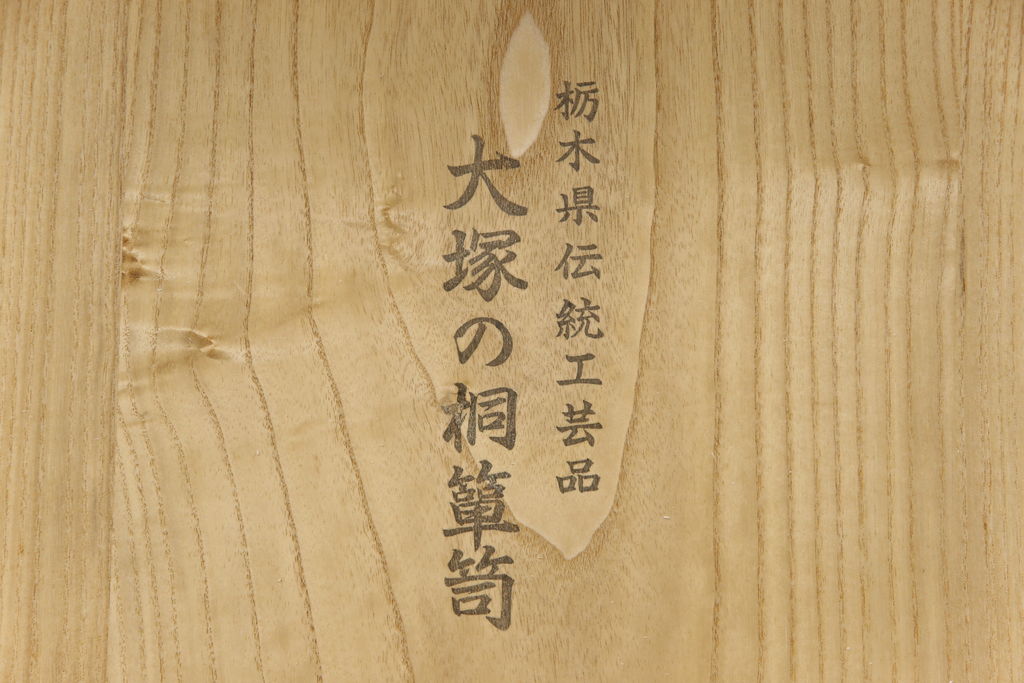 栃木県伝統工芸品
大塚の桐箪笥